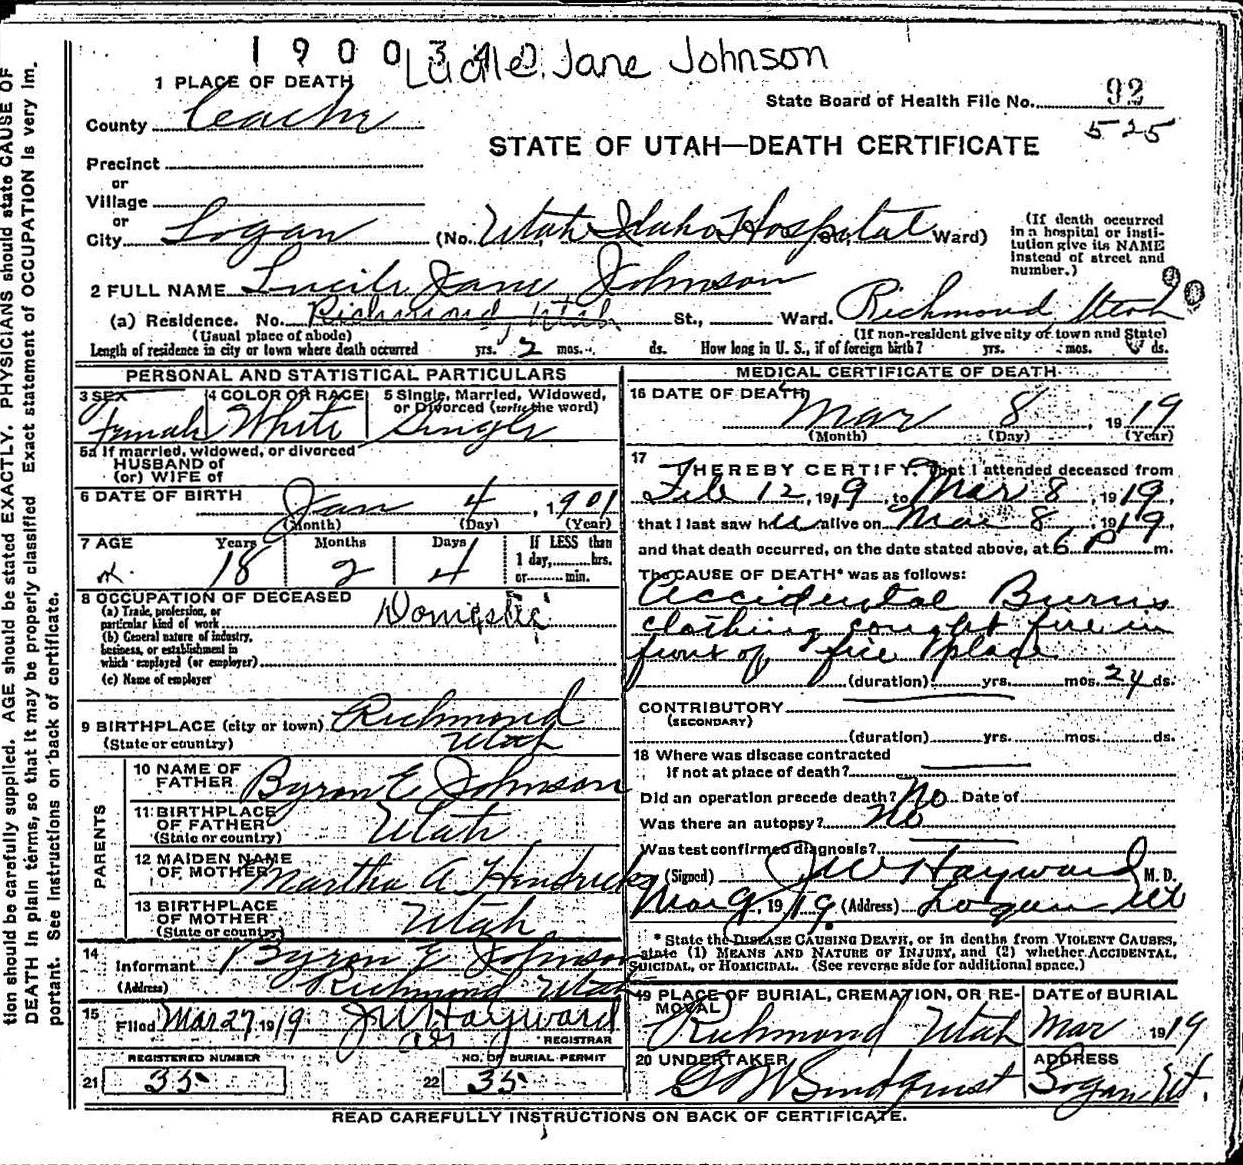 1 9 0 0 3 4 0
Lucile Jane Johnson
1 PLACE OF DEATH
State Board of Health File No. 92
525
County Ceache
STATE OF UTAH—DEATH CERTIFICATE
Precinct
or
Village
or
City Logan (No. Utah Idaho Hospital St., Ward)
(If death occurred
in a hospital or insti-
tution give its NAME
instead of street and
number.)
2 FULL NAME Lucile Jane Johnson
(a) Residence. No. Richmond, Utah St., Ward. Richmond Utah
(Usual place of abode) (If non-resident give city or town and State)
Length of residence in city or town where death occurred yrs. 2 mos. ds. How long in U. S., if of foreign birth? yrs. mos. ds.
PERSONAL AND STATISTICAL PARTICULARS
3 SEX Female
4 COLOR OR RACE White
5 Single, Married, Widowed,
or Divorced (write the word)
Single
5a If married, widowed, or divorced
HUSBAND of
(or) WIFE of
6 DATE OF BIRTH Jan 4, 1901
(Month) (Day) (Year)
7 AGE Years Months Days If LESS than
1 day, hrs.
or min.
18 2 4
8 OCCUPATION OF DECEASED
(a) Trade, profession, or
particular kind of work Domestic
(b) General nature of industry,
business, or establishment in
which employed (or employer)
(c) Name of employer
9 BIRTHPLACE (city or town) Richmond
(State or country) Utah
PARENTS
10 NAME OF
FATHER Byron E Johnson
11 BIRTHPLACE
OF FATHER Utah
(State or country)
12 MAIDEN NAME
OF MOTHER Martha A Hendricks
13 BIRTHPLACE
OF MOTHER Utah
(State or country)
14
Informant Byron E Johnson
(Address) Richmond Utah
15
Filed Mar 27, 1919 J W Hayward
REGISTRAR
REGISTERED NUMBER NO. OF BURIAL PERMIT
21 35 22 35
MEDICAL CERTIFICATE OF DEATH
16 DATE OF DEATH
Mar 8, 1919
(Month) (Day) (Year)
17
I HEREBY CERTIFY, That I attended deceased from
Feb 12, 1919, to Mar 8, 1919,
that I last saw her alive on Mar 8, 1919,
and that death occurred, on the date stated above, at 6 P m.
The CAUSE OF DEATH* was as follows:
Accidental Burns
clothing caught fire in
front of fire place
(duration) yrs. mos. 24 ds.
CONTRIBUTORY
(SECONDARY)
(duration) yrs. mos. ds.
18 Where was disease contracted
if not at place of death?
Did an operation precede death? No Date of
Was there an autopsy? No
Was test confirmed diagnosis?
(Signed) J W Hayward M. D.
Mar 9, 1919 (Address) Logan Ut
* State the DISEASE CAUSING DEATH, or in deaths from VIOLENT CAUSES,
state (1) MEANS AND NATURE OF INJURY, and (2) whether ACCIDENTAL,
SUICIDAL, or HOMICIDAL. (See reverse side for additional space.)
19 PLACE OF BURIAL, CREMATION, OR RE-
MOVAL
Richmond Utah
DATE OF BURIAL
Mar 1919
20 UNDERTAKER
ADDRESS
Logan Ut.
READ CAREFULLY INSTRUCTIONS ON BACK OF CERTIFICATE.
tion should be carefully supplied. AGE should be stated EXACTLY. PHYSICIANS should state CAUSE OF
DEATH in plain terms, so that it may be properly classified Exact statement of OCCUPATION is very im.
portant. See instructions on back of certificate.